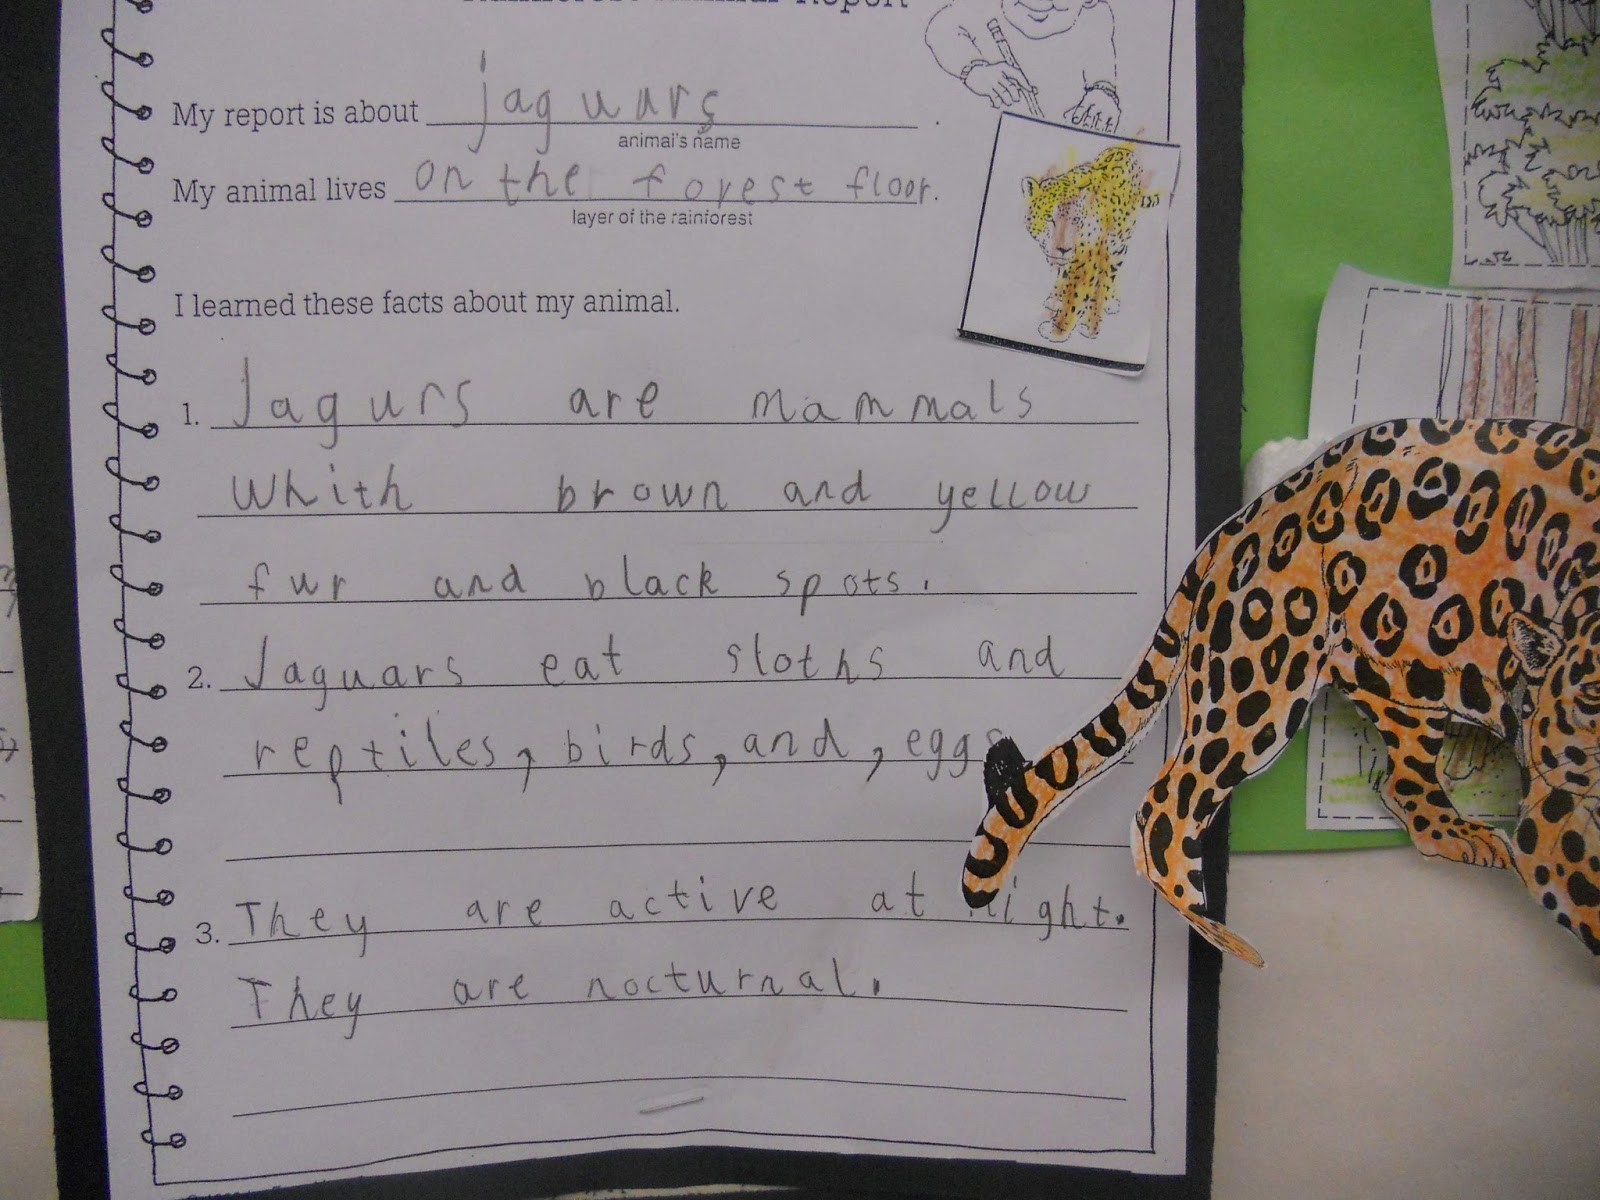 Rainforest Animal Report
My report is about jaguars.
animal's name
My animal lives on the forest floor.
layer of the rainforest
I learned these facts about my animal.
1. Jagurs are mammals
whith brown and yellow
fur and black spots.
2. Jaguars eat sloths and
reptiles, birds, and, eggs
3. They are active at night.
They are nocturnal.